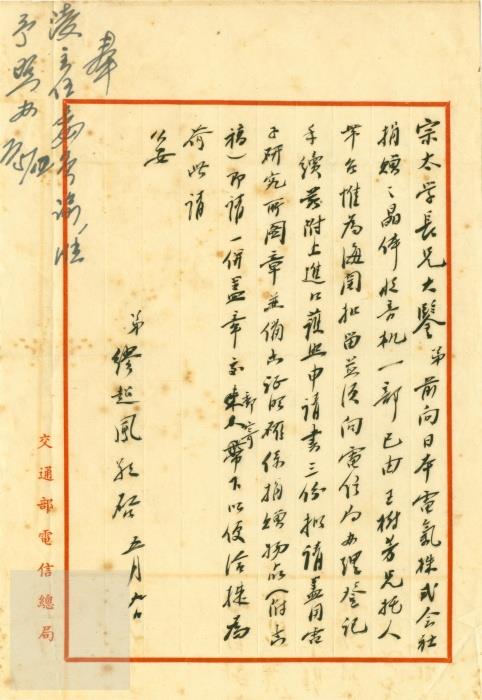 宗太学長兄大鑒弟前向日本電氣株式会社
捐贈之晶体收音机一部已由王樹芳兄托人
帶台惟為海関扣留並須向電信局办理登記
手續茲附上進口護照申請書三份拟請盖用電
子研究所図章並備出证明確係捐贈物品(附去
稿)即請一併盖章交來人帶下以便洽辦為
荷此請
安
弟繆超風敬啓五月廿九日
奉
凌主任
予照办
交通部電信總局